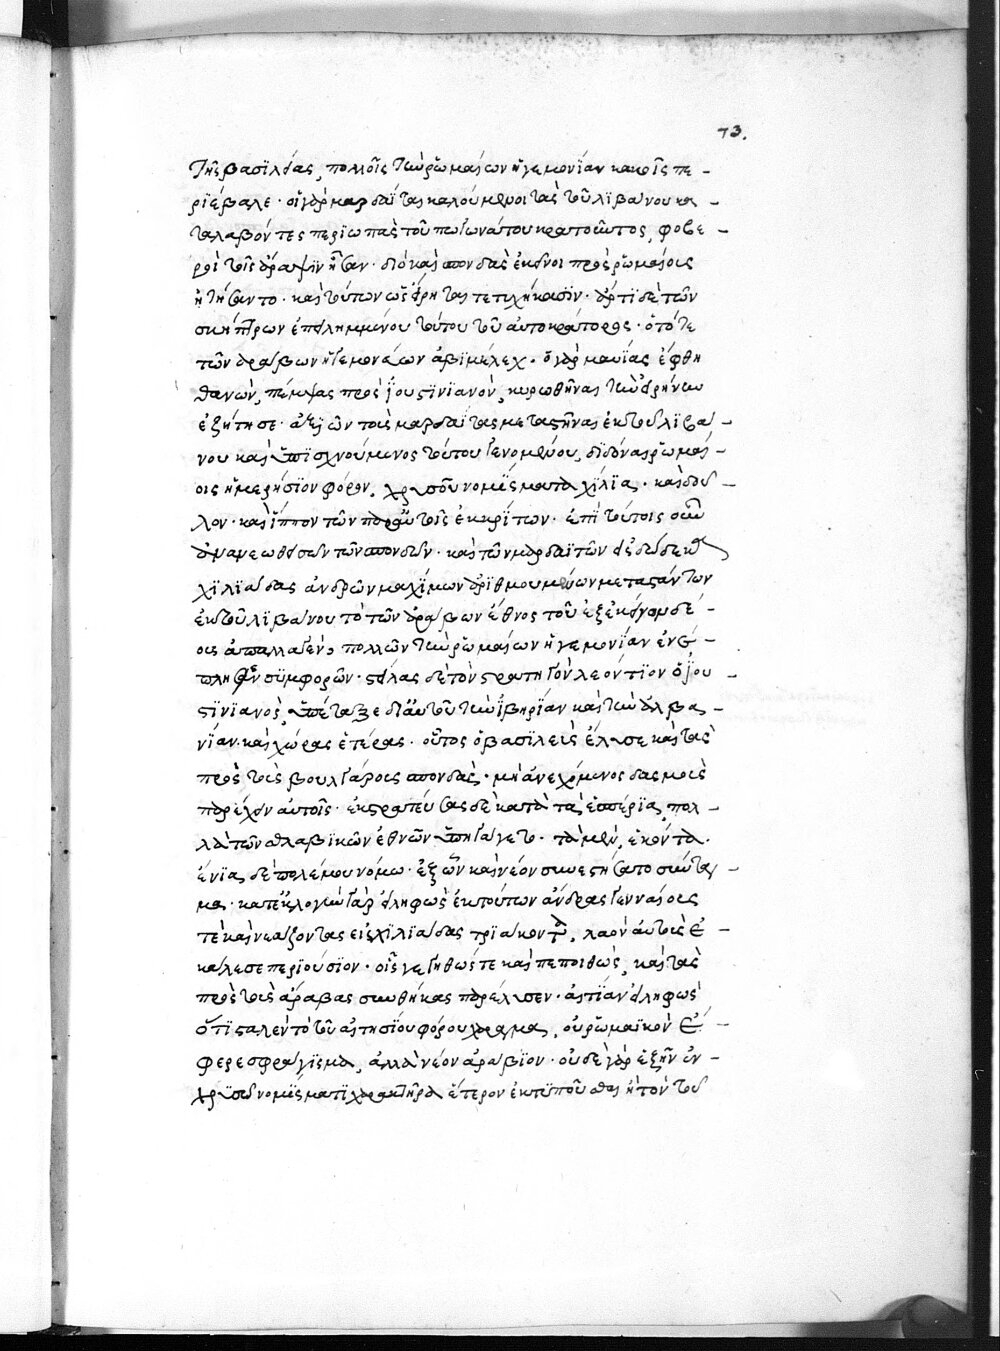 73.
τῆς βασιλείας, πολλοῖς τὴν ῥωμαίων ἡγεμονίαν κακοῖς πε -
ριέβαλε · οἱ γὰρ μαρδαΐται καλούμενοι τὰς τοῦ λιβάνου κα -
ταλαβόντες περιωπὰς τοῦ πωγωνάτου κρατοῦντος, φοβε -
ροὶ τοῖς ἄραψιν ἦσαν · διὸ καὶ σπονδὰς ἐκεῖνοι πρὸς ῥωμαίους
ᾐτήσαντο · καὶ τούτων ὡς ἐρρήθη τετυχήκασιν · ἄρτι δὲ τῶν
σκήπτρων ἐπειλημμένου τούτου τοῦ αὐτοκράτορος · ὁ τότε
τῶν ἀράβων ἡγεμονεύων ἀβιμέλεχ · ὁ γὰρ μαυίας ἔφθη
θανών, πέμψας πρὸς ἰουστινιανὸν, κυρωθῆναι τὴν εἰρήνην
ἐζήτησε · ἀξιῶν τοὺς μαρδαΐτας μεταστῆναι ἐκ τοῦ λιβά -
νου καὶ ὑπισχνούμενος τούτου γενομένου, διδόναι ῥωμαί -
οις ἡμερήσιον φόρον, χρυσοῦ νομίσματα χίλια · καὶ δοῦ -
λον · καὶ ἵππον τῶν παρ' αὐτοῖς ἐκκρίτων · ἐπὶ τούτοις οὖν
ἀνανεωθεισῶν τῶν σπονδῶν · καὶ τῶν μαρδαϊτῶν εἰς δώδεκα
χιλιάδας ἀνδρῶν μαχίμων ἀριθμουμένων μεταστάντων
ἐκ τοῦ λιβάνου τὸ τῶν ἀράβων ἔθνος τοῦ ἐξ ἐκείνων δέ -
ους ἀπαλλαγὲν, πολλῶν τὴν ῥωμαίων ἡγεμονίαν ἐν -
πλησε συμφορῶν · στείλας δὲ τὸν στρατηγὸν λεόντιον ὁ ἰου
στινιανὸς, ὑπέταξε δι' αὐτοῦ τὴν ἰβηρίαν καὶ τὴν ἀλβα -
νίαν · καὶ χώρας ἑτέρας · οὗτος ὁ βασιλεὺς ἔλυσε καὶ τὰς
πρὸς τοὺς βουλγάρους σπονδὰς · μὴ ἀνεχόμενος δασμοὺς
παρέχειν αὐτοῖς · ἐκστρατεύσας δὲ κατὰ τὰ ἑσπέρια, πολ -
λὰ τῶν σθλαβικῶν ἐθνῶν ὑπηγάγετο · τὰ μὲν, ἑκόντα ·
ἔνια, δὲ πολέμου νόμῳ · ἐξ ὧν καὶ νέον συνεστήσατο σύνταγ -
μα · κατ' ἐκλογὴν γὰρ εἰληφὼς ἐκ τούτων ἄνδρας γενναίους
τὲ καὶ νεάζοντας εἰς χιλιάδας τριάκοντα, λαὸν αὐτοὺς ἐ -
κάλεσε περιούσιον · οἷς γεγηθώς τε καὶ πεποιθὼς, καὶ τὰς
πρὸς τοὺς ἄραβας συνθήκας παρέλυσεν · αἰτίαν εἰληφὼς
ὅτι σταλὲν τὸ τοῦ αἰτησίου φόρου χάραγμα, οὐ ῥωμαϊκὸν ἔ -
φερε σφράγισμα, ἀλλὰ νέον ἀράβιον · οὐδὲ γὰρ ἐξῆν ἐν
χρυσῷ νομίσματι χαρακτῆρα ἕτερον ἐκτυποῦσθαι ἢ τὸν τοῦ